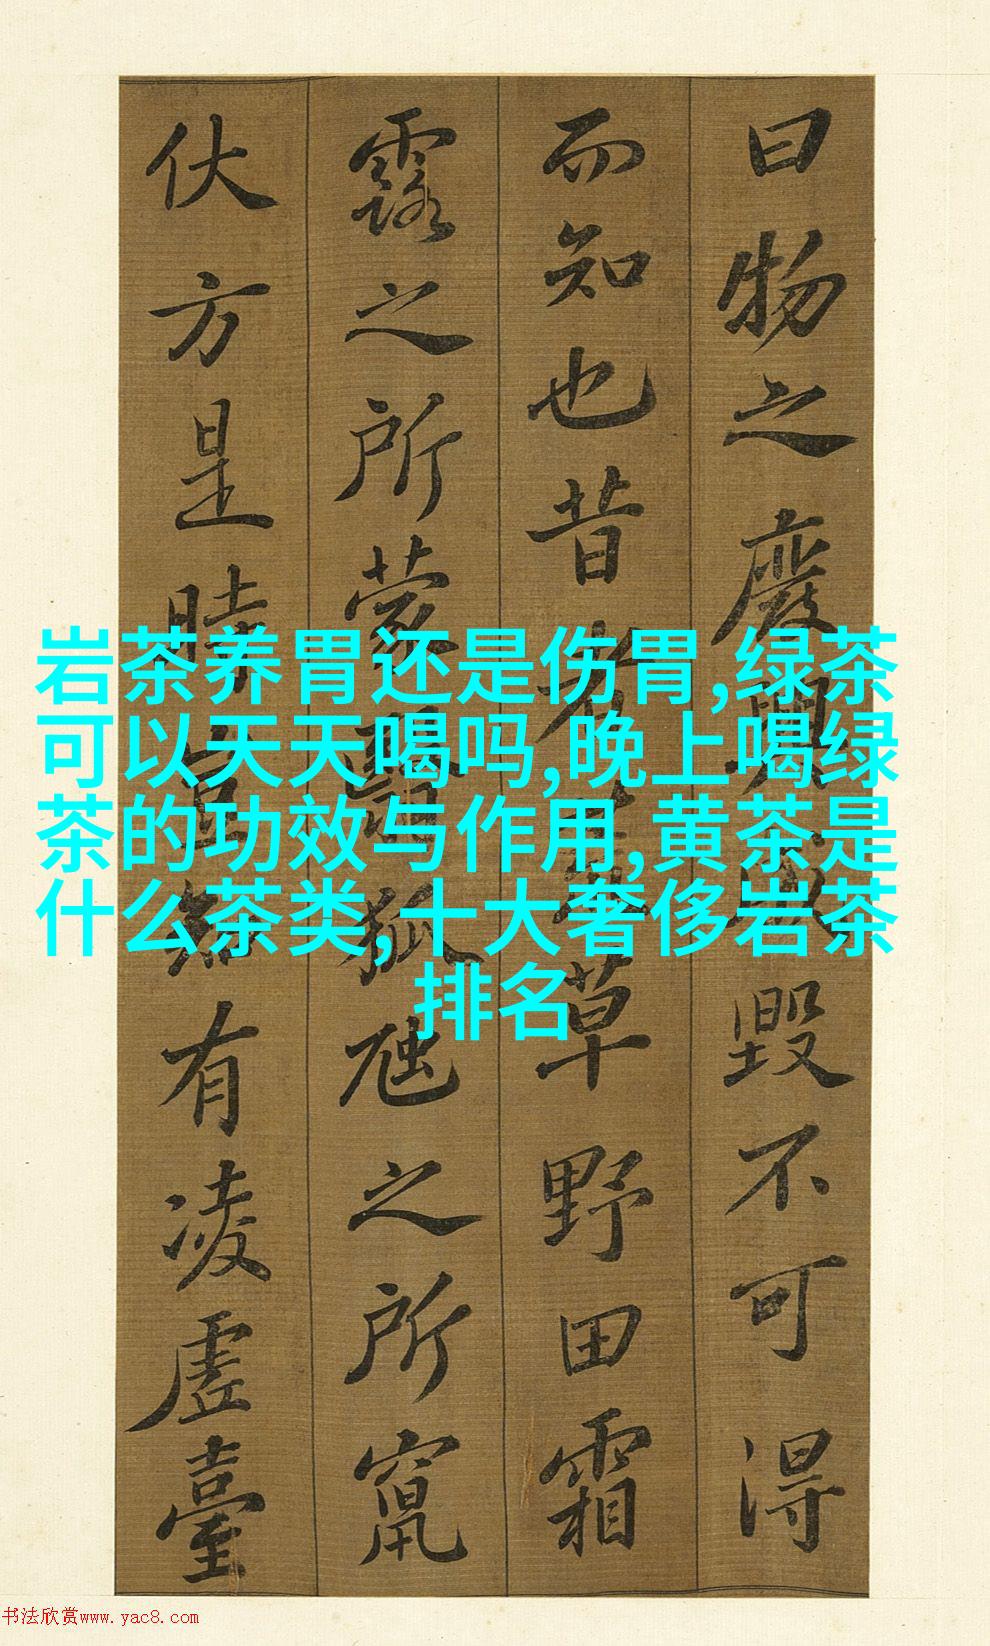 曰物之廢興成毀不可得
而知也昔者荒草野田霜
露之所蒙翳狐虺之所竄
伏方是時豈知有凌虛臺
岩茶养胃还是伤胃,绿茶
可以天天喝吗,晚上喝绿
茶的功效与作用,黄茶是
什么茶类,十大奢侈岩茶
排名
书法欣赏www.yac8.com